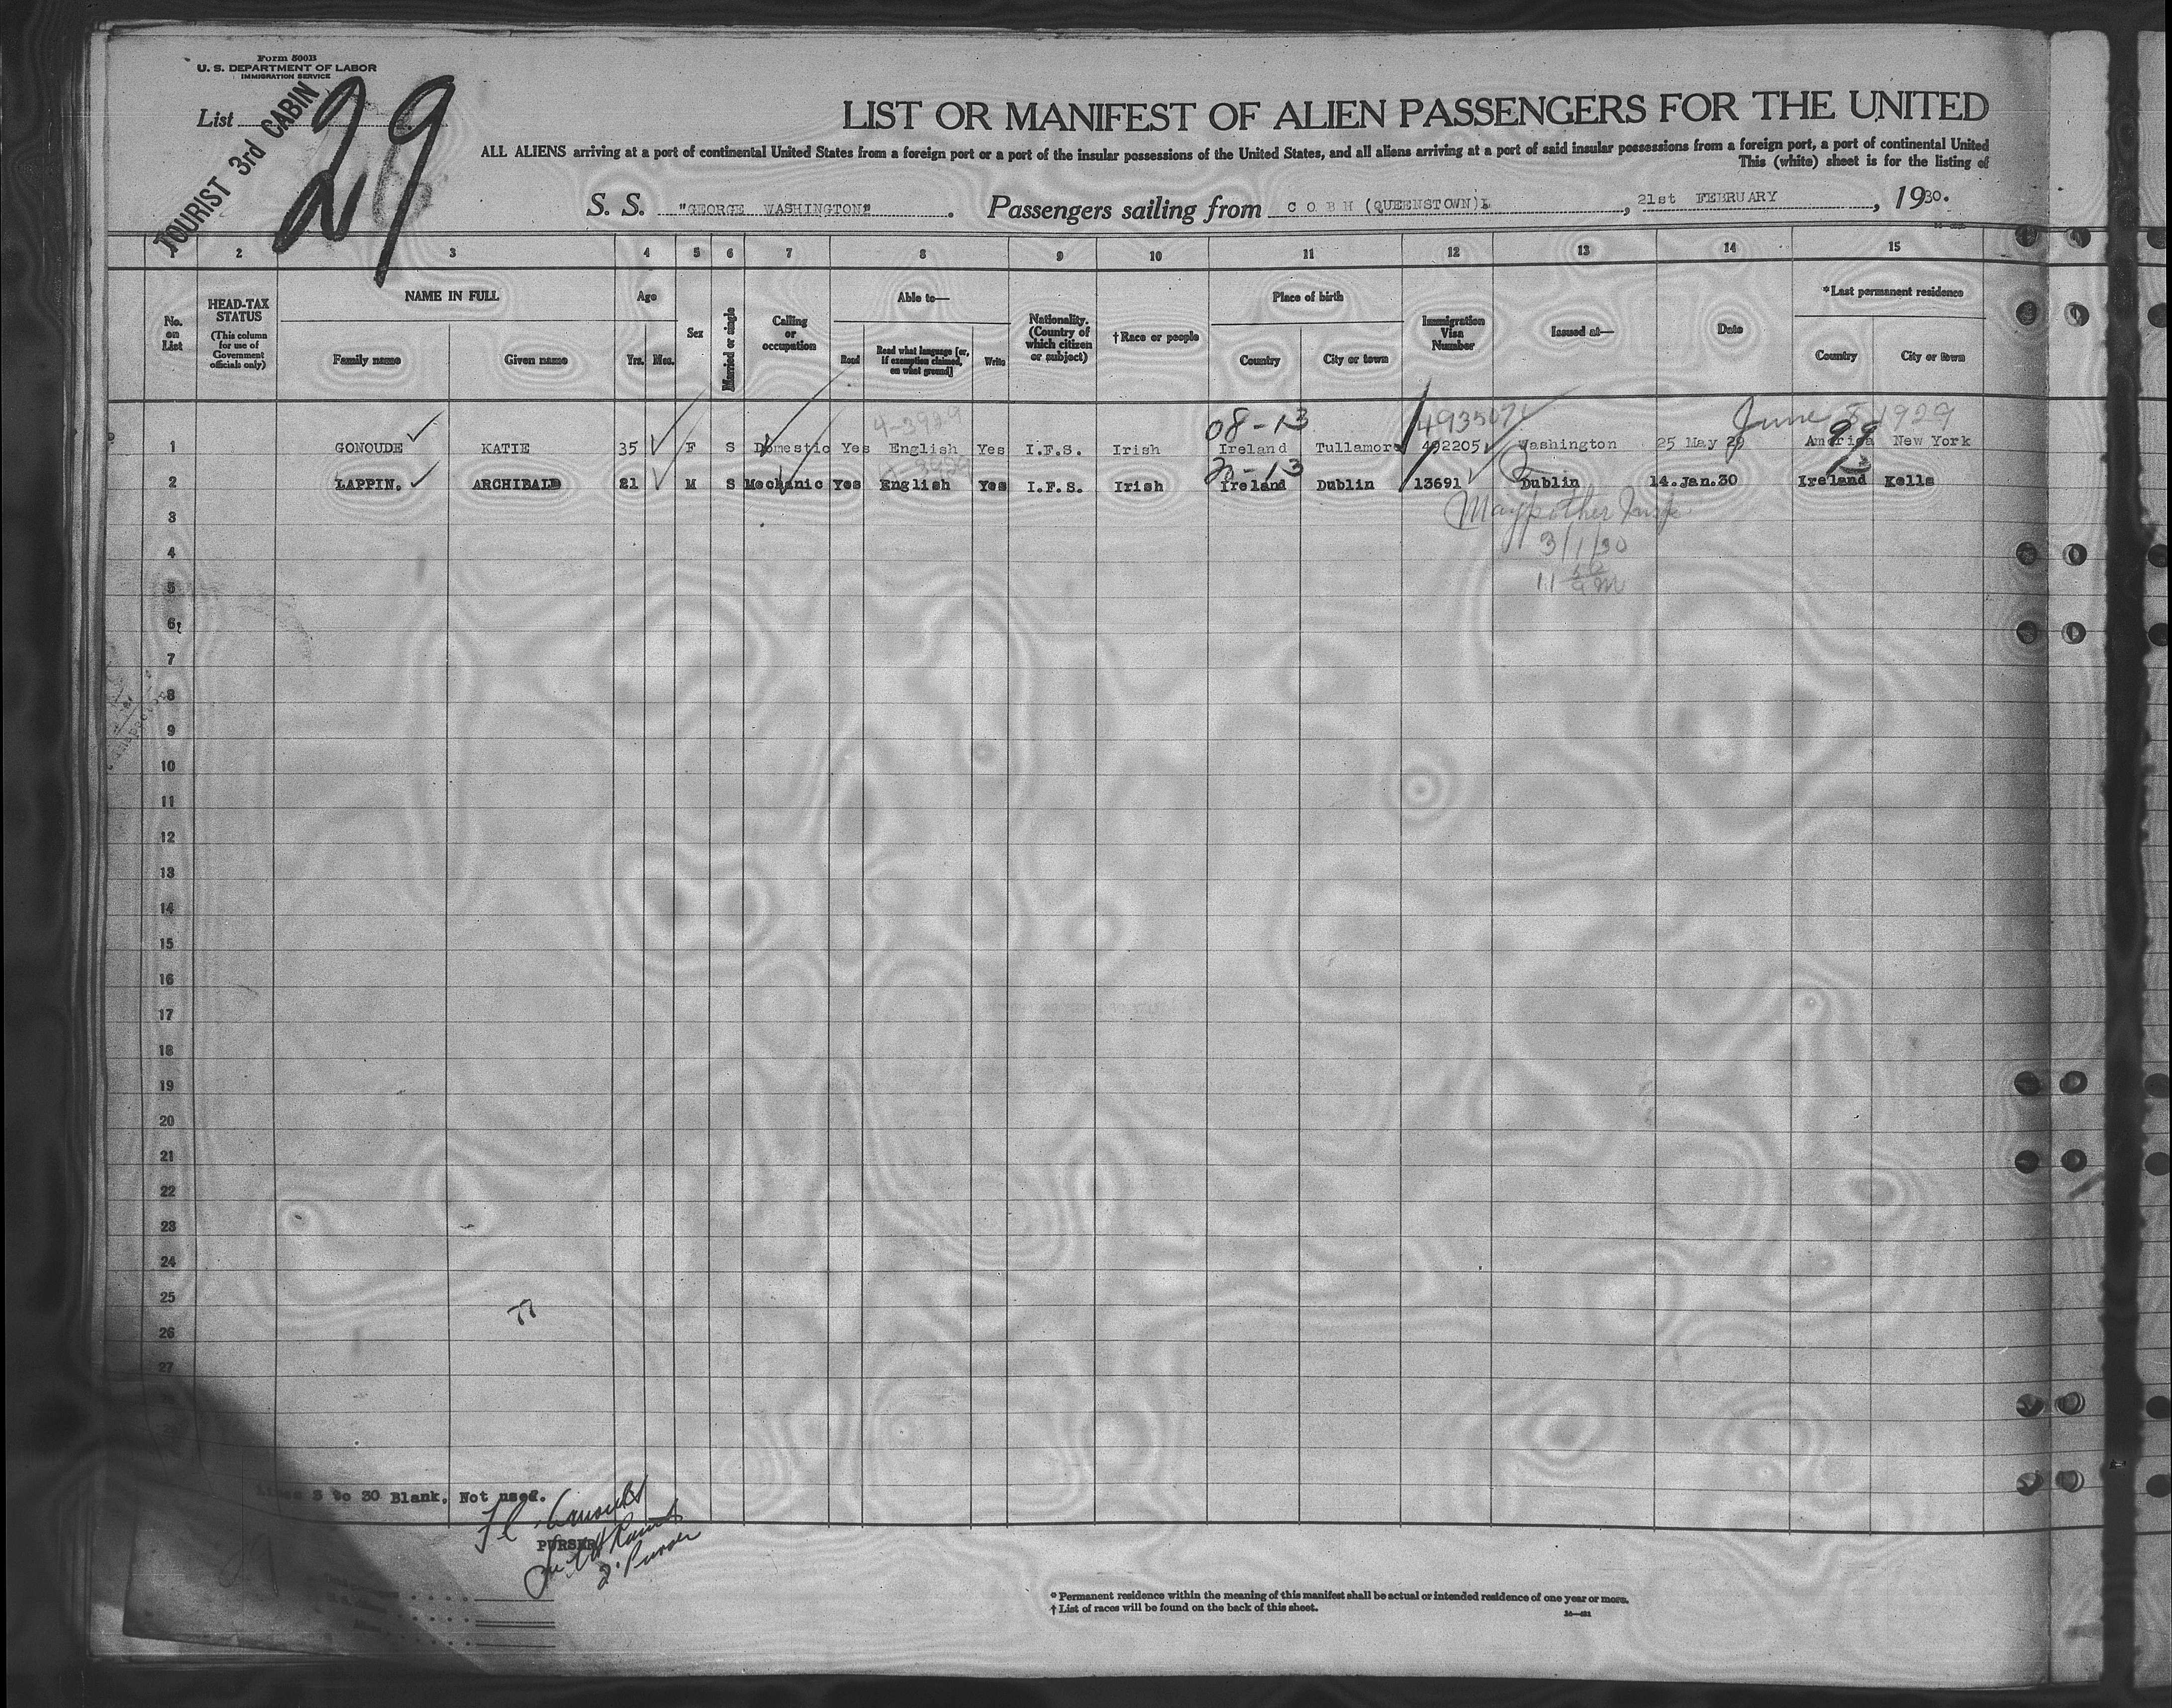 Form 500B
U. S. DEPARTMENT OF LABOR
IMMIGRATION SERVICE
List 29
TOURIST 3rd CABIN
LIST OR MANIFEST OF ALIEN PASSENGERS FOR THE UNITED
ALL ALIENS arriving at a port of continental United States from a foreign port or a port of the insular possessions of the United States, and all aliens arriving at a port of said insular possessions from a foreign port, a port of continental United
This (white) sheet is for the listing of
S. S. "GEORGE WASHINGTON" . Passengers sailing from C O B H (QUEENSTOWN) , 21st FEBRUARY , 1930.
2 3 4 5 6 7 8 9 10 11 12 13 14 15
No. on List
HEAD-TAX STATUS (This column for use of Government officials only)
NAME IN FULL
Family name Given name
Age
Yrs. Mos.
Sex
Married or single
Calling or occupation
Able to—
Read Read what language [or, if exemption claimed, on what ground] Write
Nationality. (Country of which citizen or subject)
†Race or people
Place of birth
Country City or town
Immigration Visa Number
Issued at—
Date
*Last permanent residence
Country City or town
4-3929 08-13 June 5 1929 99
1 GONOUDE KATIE 35 F S Domestic Yes English Yes I.F.S. Irish Ireland Tullamore 492205 Washington 25 May 29 America New York
2 LAPPIN. ARCHIBALD 21 M S Mechanic Yes English Yes I.F.S. Irish Ireland Dublin 13691 Dublin 14.Jan.30 Ireland Kells
3
3/1/30
4
5
6
7
8
9
10
11
12
13
14
15
16
17
18
19
20
21
22
23
24
25
77
26
27
3 to 30 Blank. Not used.
PURSER
2. Purser
* Permanent residence within the meaning of this manifest shall be actual or intended residence of one year or more.
† List of races will be found on the back of this sheet.